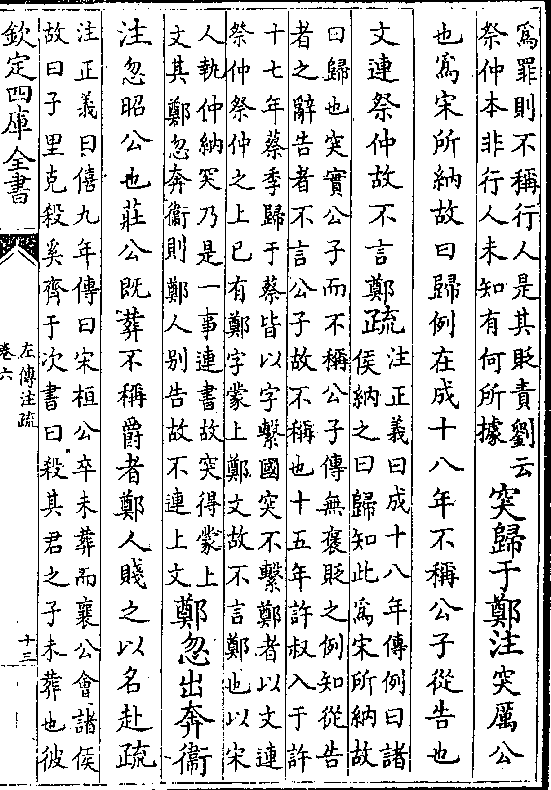 爲罪則不稱行人是其貶責劉云
祭仲本非行人未知有何所據
突歸于鄭注突厲公
也爲宋所納故曰歸例在成十八年不稱公子從告也
文連祭仲故不言鄭疏
注正義曰成十八年傳例曰諸
侯納之曰歸知此爲宋所納故
曰歸也突實公子而不稱公子傳無襃貶之例知從告
者之辭告者不言公子故不稱也十五年許叔入于許
十七年蔡季歸于蔡皆以字繫國突不繫鄭者以文連
祭仲祭仲之上已有鄭字蒙上鄭文故不言鄭也以宋
人執仲納突乃是一事連書故突得蒙上
文其鄭忽奔衞則鄭人别告故不連上文
鄭忽出奔衞
注忽昭公也莊公既葬不稱爵者鄭人賤之以名赴疏
注正義曰僖九年傳曰宋桓公卒未葬而襄公會諸侯
故曰子里克殺奚齊于次書曰殺其君之子未葬也彼
欽定四庫全書
左傳注疏
卷六
十三